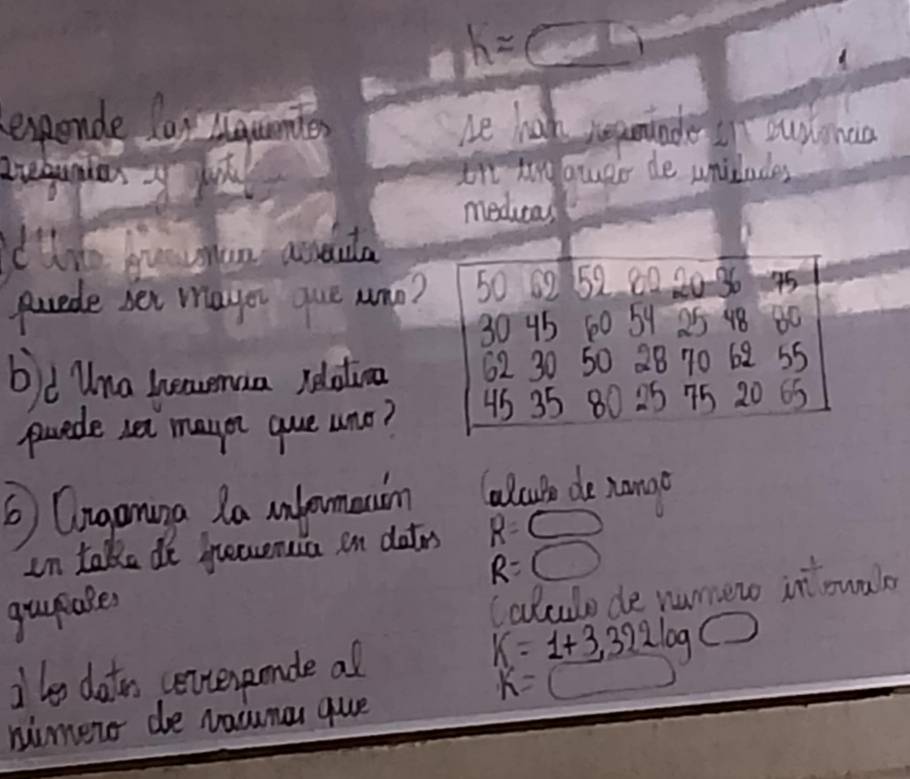 K ≈
Responde las siguientes
preguntas y
a) ¿Una frecuencia absoluta
puede ser mayor que uno?
b) ¿Una frecuencia relativa
puede ser mayor que uno?
6) Organiza la información
en tabla de frecuencia en datos
grupales
a) los datos corresponde al
número de vacunas que
se han reportado en
en un grupo de unidades
medicas
50 62 52 80 20 36 75
30 45 60 54 25 48 80
62 30 50 28 70 62 55
45 35 80 25 75 20 65
Calculo de rango
R =
R =
Calculo de numero intervalo
K = 1 + 3,322 log
K =